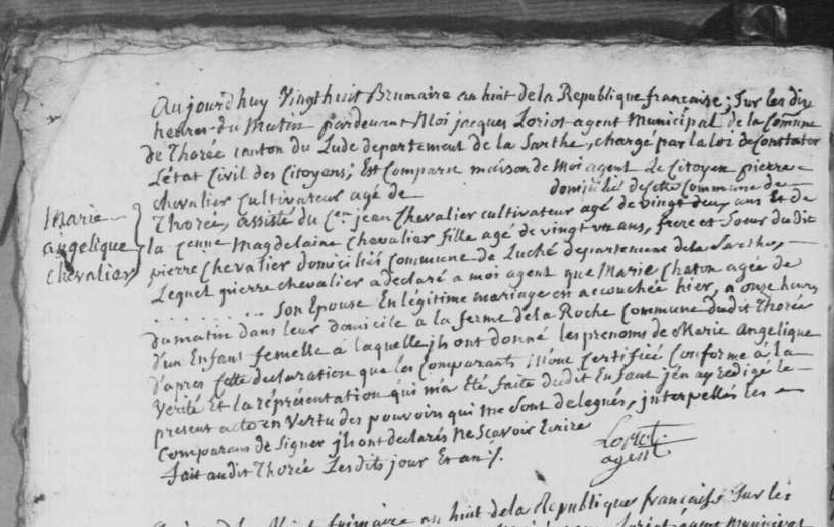 Aujourdhuy Vingt huit Brumaire an huit de la Republique francaise; Sur les dix
heures du Matin pardevant Moi jacques Loriot agent Municipal de la Commune
de Thorée canton du Lude departement de la Sarthe, chargé par la loi de Constater
L'état Civil des Citoyens; Est Comparu maison de Moi agent Le Citoyen pierre
chevalier Cultivateur agé de domicilié de cette Commune de
Thorée, assisté du Cen jean Chevalier cultivateur agé de vingt deux ans Et de
la Cenne Magdelaine Chevalier fille agé de vingt un ans, frere et Soeur dudit
pierre Chevalier domiciliés Commune de Luché departement de la Sarthe,
Lequel pierre chevalier a déclaré a moi agent que Marie Chaton agée de
. . . . . . . . . . Son Epouse En légitime mariage est accouchée hier, a onze heures
du matin dans leur domicile a la ferme de la Roche Commune dudit Thorée
d'un Enfant femelle à laquelle jls ont donné les prenoms de Marie Angelique
D'après Cette declaration que les Comparants m'ont Certifiée Conforme à la
Verité Et la répresentation qui m'a Eté faite dudit Enfant j'en ay redigé le
present acte en Vertu des pouvoirs qui me Sont delegués, interpellés les
Comparans de Signer jls ont declarés ne Scavoir Ecrire
fait audit Thorée Lesdits jour Et an /.
Loriot
agent
Marie
angelique
chevalier
an huit de la Republique francaise Sur les